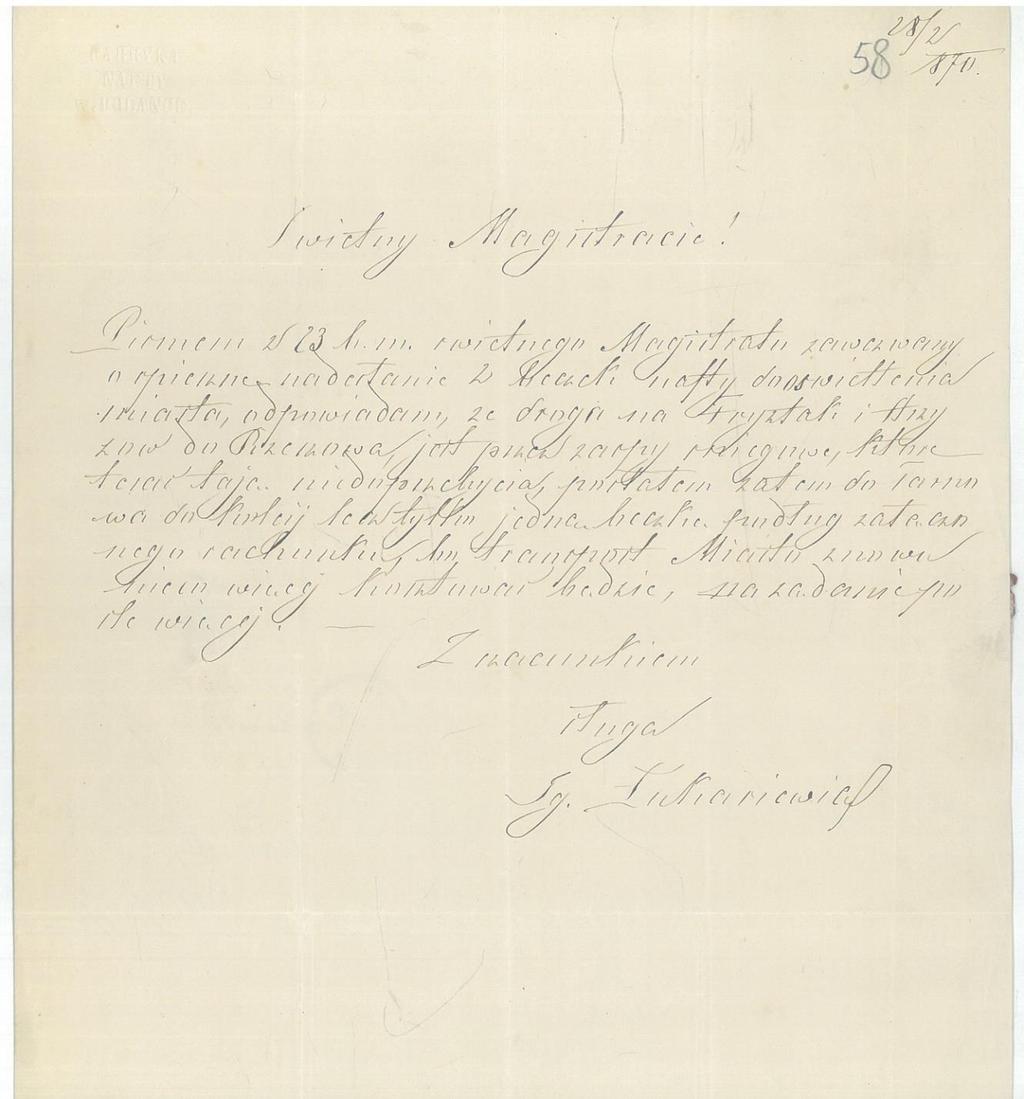 28/2
58 870.
Swietny Magistracie!
Pismem z 23 b.m. swietnego Magistratu zawezwany
o spieszne nadesłanie 2 beczek nafty do oswietlenia
miasta, odpowiadam, ze droga na Frysztak i Strzy
zow do Rzeszowa, jest przez zaspy sniegowe, które
teraz taja niedoprzebycia, posłałem zatem do Tarno
wa do koleij lecz tylko jedna beczke podług załaczo
nego rachunku, bo transport Miastu znowu
wiecej kosztować bedzie, na zadanie po
sle wiecej. —
Z szacunkiem
sługa
Ig. Łukasiewicz